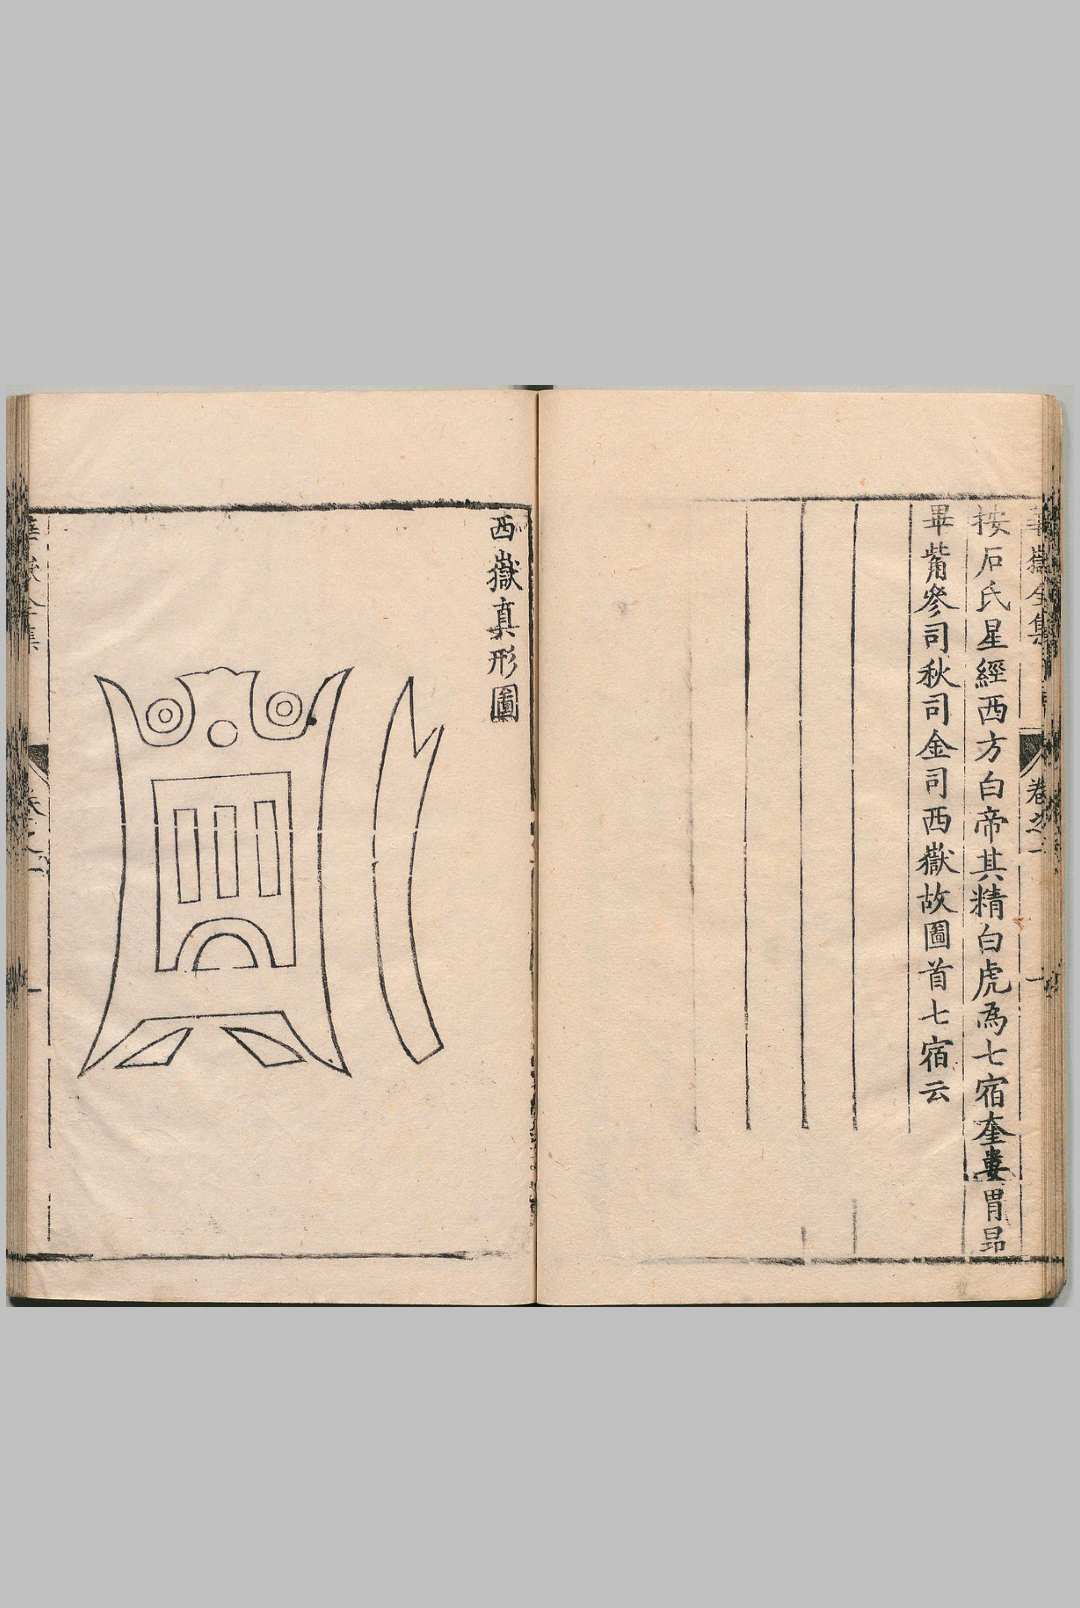 華嶽全集
卷之一
一
按石氏星經西方白帝其精白虎為七宿奎婁胃昴
畢觜參司秋司金司西嶽故圖首七宿云
西嶽真形圖
華嶽全集
卷之一
一